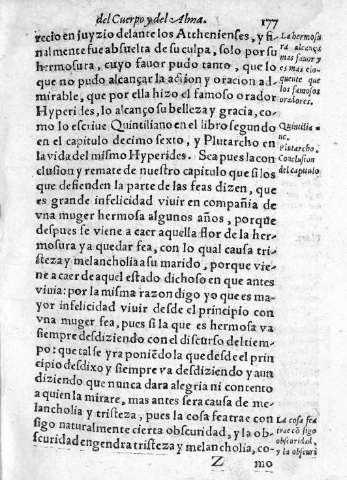 del Cuerpo y del Alma.
177
recio en juyzio delante los Atthenienses, y fi
nalmente fue absuelta de su culpa, solo por su
hermosura, cuyo fauor pudo tanto, que lo
que no pudo alcançar la acion y oracion ad-
mirable, que por ella hizo el famoso orador
Hyperides, lo alcanço su belleza y gracia, co-
mo lo escriue Quintiliano en el libro segundo
en el capitulo decimo sexto, y Plutarcho en
la vida del mismo Hyperides. Sea pues la con
clusion y remate de nuestro capitulo que si los
que defienden la parte de las feas dizen, que
es grande infelicidad viuir en compañia de
vna muger hermosa algunos años, porque
despues se viene a caer aquella flor de la her-
mosura y a quedar fea, con lo qual causa tri-
steza y melancholia a su marido, porque vie-
ne a caer de aquel estado dichoso en que antes
viuia: por la misma razon digo yo que es ma-
yor infelicidad viuir desde el principio con
vna muger fea, pues si la que es hermosa va
siempre desdiziendo con el discurso del tiem-
po: que tal se yra poniẽdo la que desde el prin
cipio desdixo y siempre va desdiziendo y aun
diziendo que nunca dara alegria ni contento
a quien la mirare, mas antes sera causa de me-
lancholia y tristeza, pues la cosa fea trae con
sigo naturalmente cierta obscuridad, y la ob-
scuridad engendra tristeza y melancholia, co-
Z mo
La hermosu
ra alcança
mas fauor y
es mas elo-
quente que
los famosos
oradores.
Quintilia
no.
Plutarcho.
Conclusion
del capitulo
La cosa fea
trae cõ sigo
obscuridad,
y la obscuri